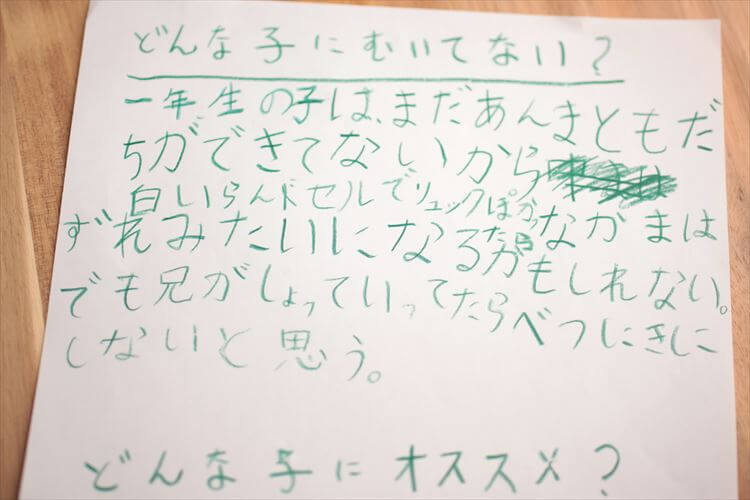 どんな子にむいてない?
一年生の子は、まだあんまともだ
ちができてないから
白いらんドセルでリュックぽかったら
ずれみたいになるかもしれない。なかまは
でも兄がしょっていってたらべつにきに
しないと思う。
どんな子にオススメ?